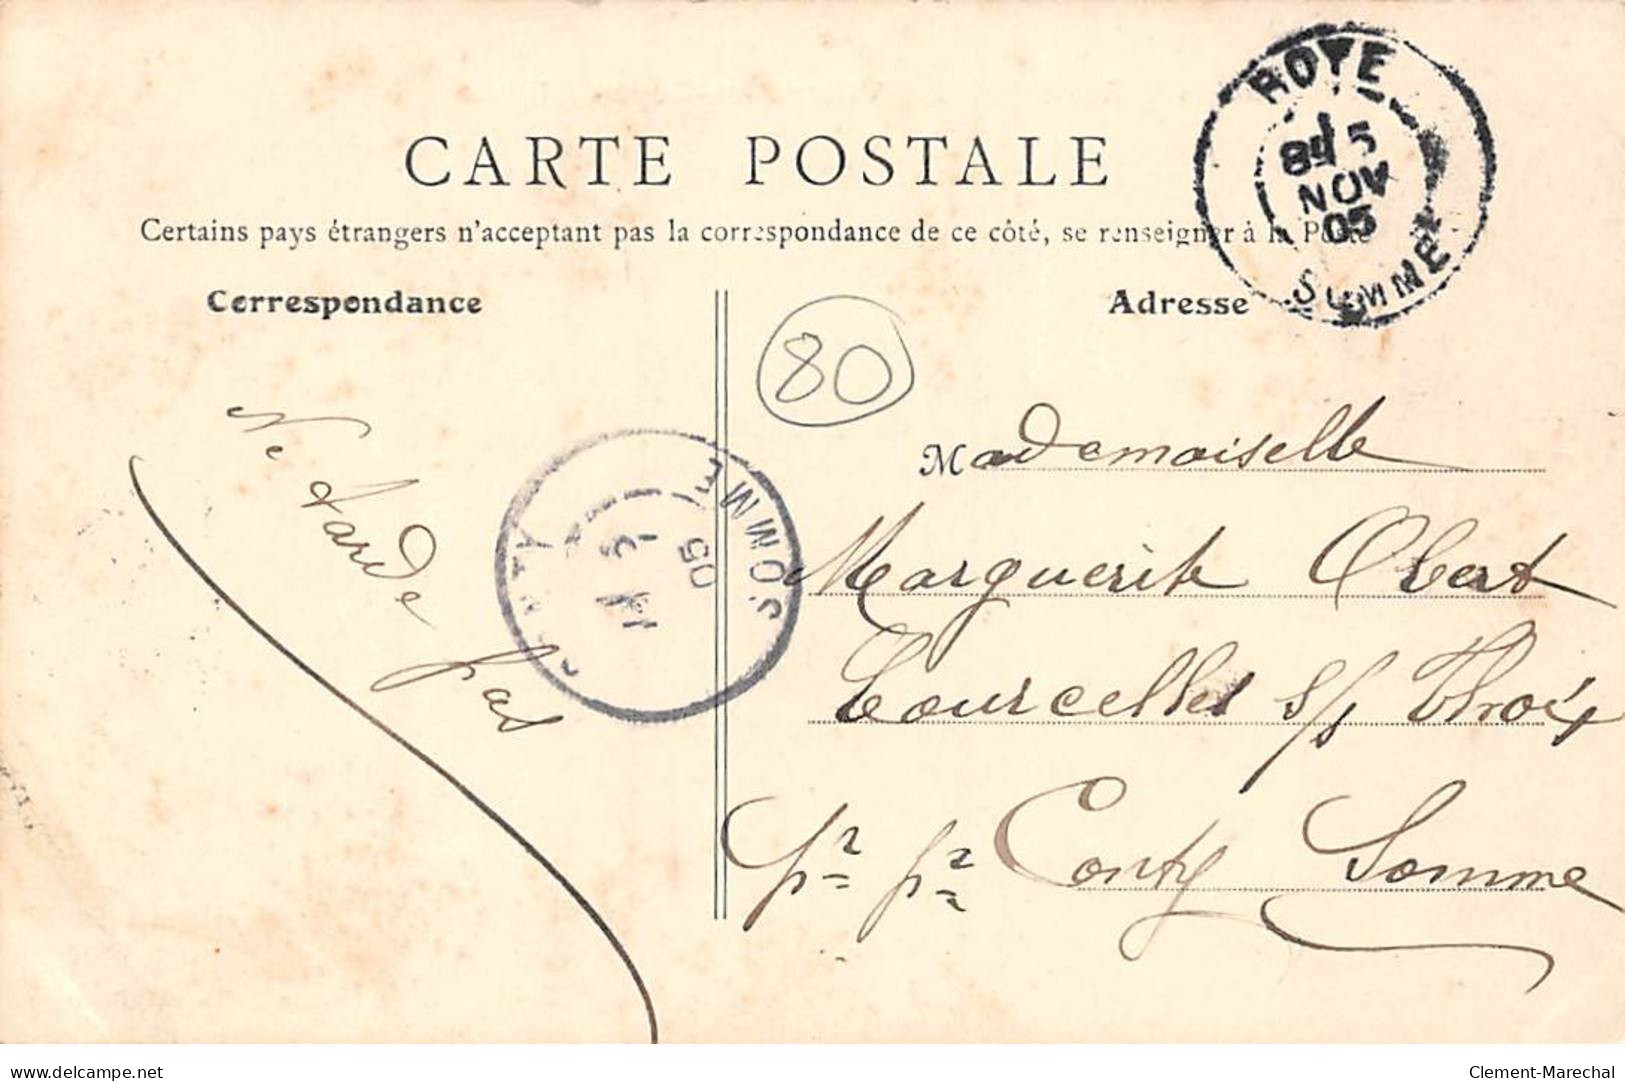 CARTE POSTALE
Certains pays étrangers n'acceptent pas la correspondance de ce côté, se renseigner à la Poste
Correspondance
Adresse
ROYE
5
NOV
05
SOMME
80
Ne tarde pas
SOMME
05
Mademoiselle
Marguerite Obert
Courcelles s/s Thoix
pr pr Conty Somme
delcampe.net
Clement-Marechal